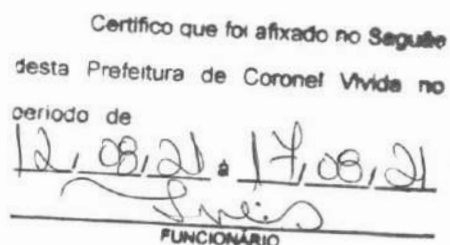 Certifico que foi afixado no Saguão
desta Prefeitura de Coronel Vivida no
periodo de
12, 08, 21 a 17, 08, 21
FUNCIONÁRIO